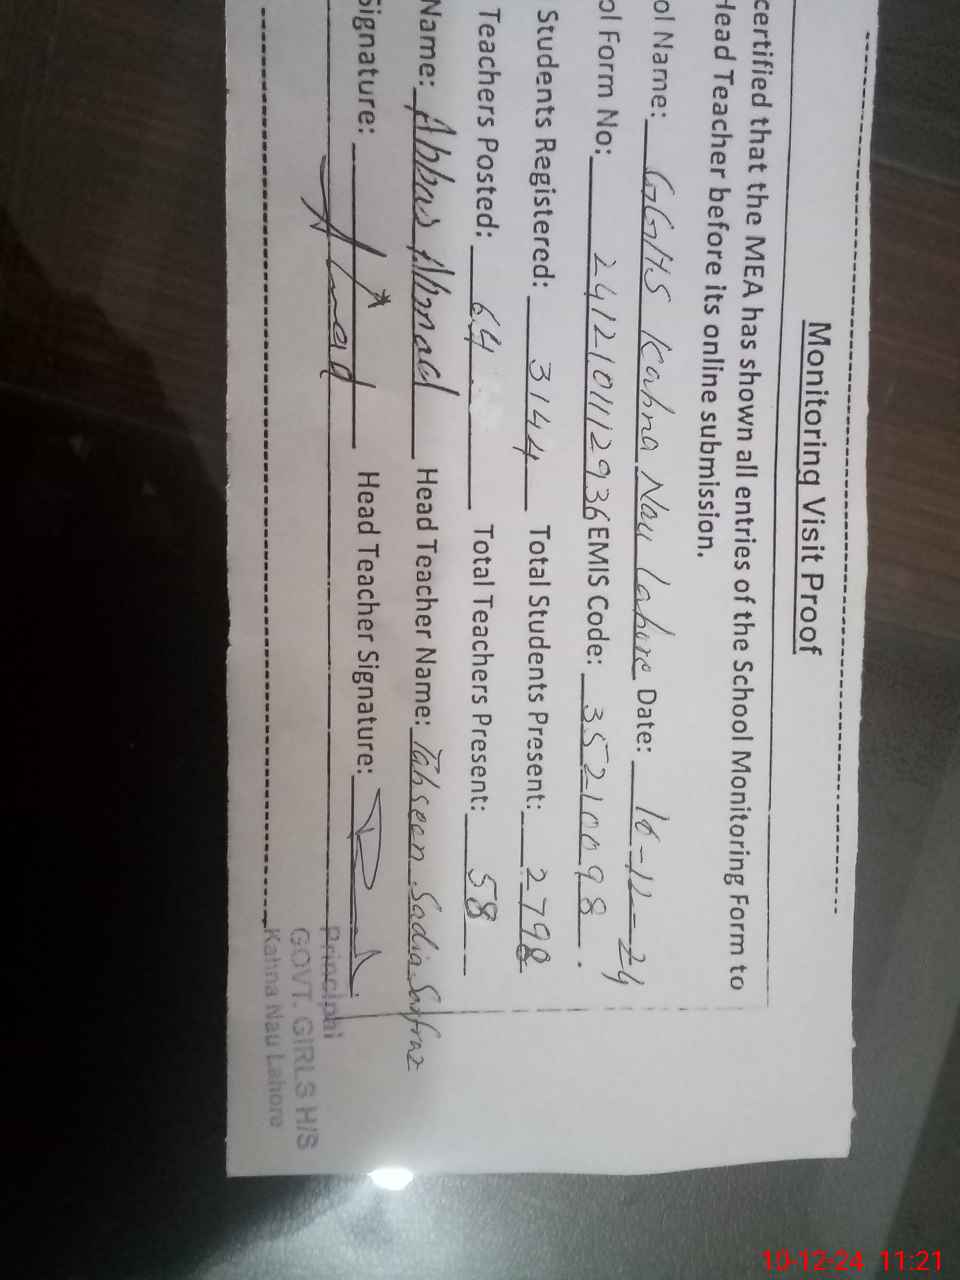 Monitoring Visit Proof
certified that the MEA has shown all entries of the School Monitoring Form to
Head Teacher before its online submission.
ol Name: GGHS Kahna Nau Lahore Date: 16-12-24
ol Form No: 2412101112936 EMIS Code: 35210098.
Students Registered: 3144 Total Students Present: 2798
Teachers Posted: 64 Total Teachers Present: 58
Name: Abbas Ahmad Head Teacher Name: Tahseen Sadia Sarfraz
Signature: Ahmad Head Teacher Signature:
GOVT. GIRLS H/S
Kahna Nau Lahore
10-12-24 11:21